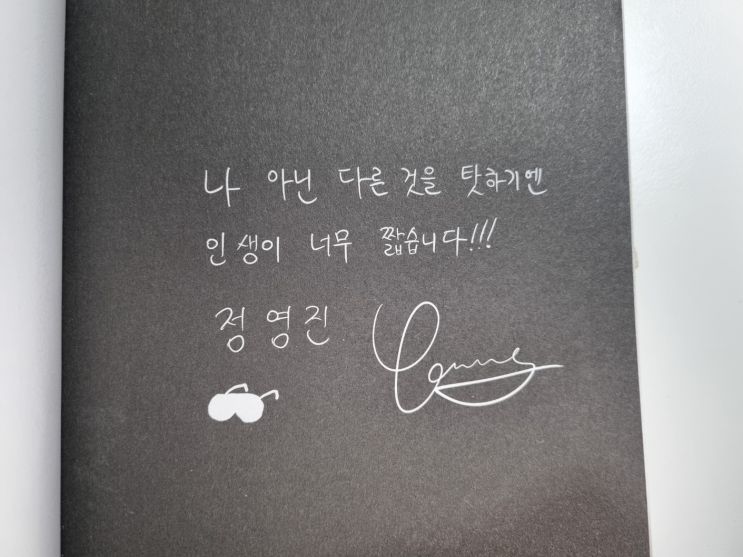 나 아닌 다른 것을 탓하기엔
인생이 너무 짧습니다!!!
정영진